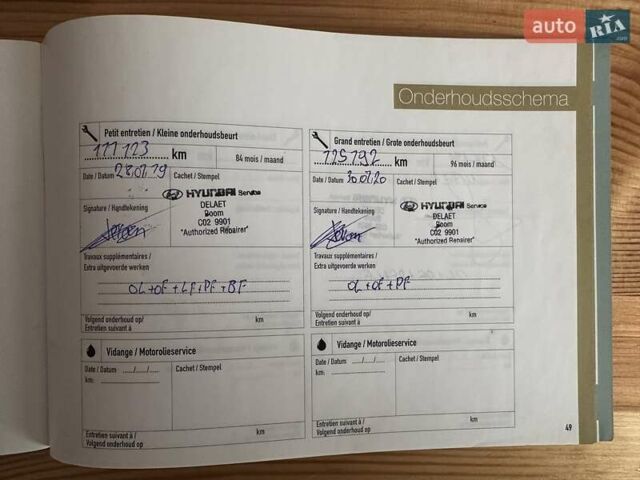 auto RIA.com
Onderhoudsschema
Petit entretien / Kleine onderhoudsbeurt
111 123 km
84 mois / maand
Date / Datum 23.07.19
Cachet / Stempel
HYUNDAI Service
DELAET
Boom
C02 9901
"Authorized Repairer"
Signature / Handtekening
Travaux supplémentaires /
Extra uitgevoerde werken
OL+OF+LF+PF+BF
Volgend onderhoud op/
Entretien suivant à
km
Grand entretien / Grote onderhoudsbeurt
125192 km
96 mois / maand
Date / Datum 30.07.20
Cachet / Stempel
HYUNDAI Service
DELAET
Boom
C02 9901
"Authorized Repairer"
Signature / Handtekening
Travaux supplémentaires /
Extra uitgevoerde werken
OL+OF+PF
Volgend onderhoud op /
Entretien suivant à
km
Vidange / Motorolieservice
Date / Datum ..../..../....
Cachet / Stempel
km:
Entretien suivant à /
Volgend onderhoud op
km
Vidange / Motorolieservice
Date / Datum ..../..../....
Cachet / Stempel
km:
Entretien suivant à /
Volgend onderhoud op
km
49